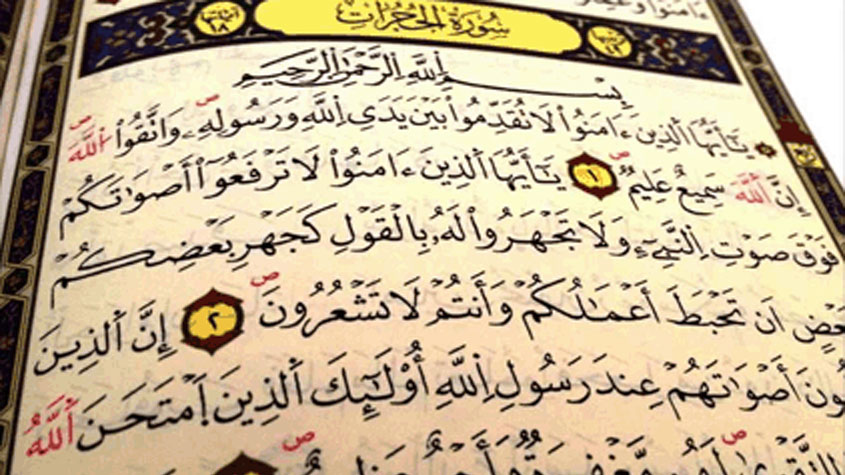 ءَامَنُوا
سُورَةُ الحُجُرَاتِ
آياتها ١٨
بِسْمِ اِللَّهِ الرَّحْمَٰنِ الرَّحِيمِ
يَٰٓأَيُّهَا اَلذِينَ ءَامَنُواْ لَا تُقَدِّمُواْ بَيْنَ يَدَيِ اِللَّهِ وَرَسُولِهِۦ ص وَاتَّقُواْ اُللَّهَ ص
إِنَّ اَللَّهَ سَمِيعٌ عَلِيمٌ ص ١ يَٰٓأَيُّهَا اَلذِينَ ءَامَنُواْ لَا تَرْفَعُوٓاْ أَصْوَٰتَكُمْ
فَوْقَ صَوْتِ اِلنَّبِيٓءِ وَلَا تَجْهَرُواْ لَهُۥ بِالْقَوْلِ كَجَهْرِ بَعْضِكُمْ
ـعْضٍ اَن تَحْبَطَ أَعْمَٰلُكُمْ وَأَنتُمْ لَا تَشْعُرُونَ ص ٢ إِنَّ اَلذِينَ
ـونَ أَصْوَٰتَهُمْ عِندَ رَسُولِ اِللَّهِ أُوْلَٰٓئِكَ اَلذِينَ اَمْتَحَنَ اَللَّهُ
ص مَّغْفِرَةٌ وَأَجْرٌ ص